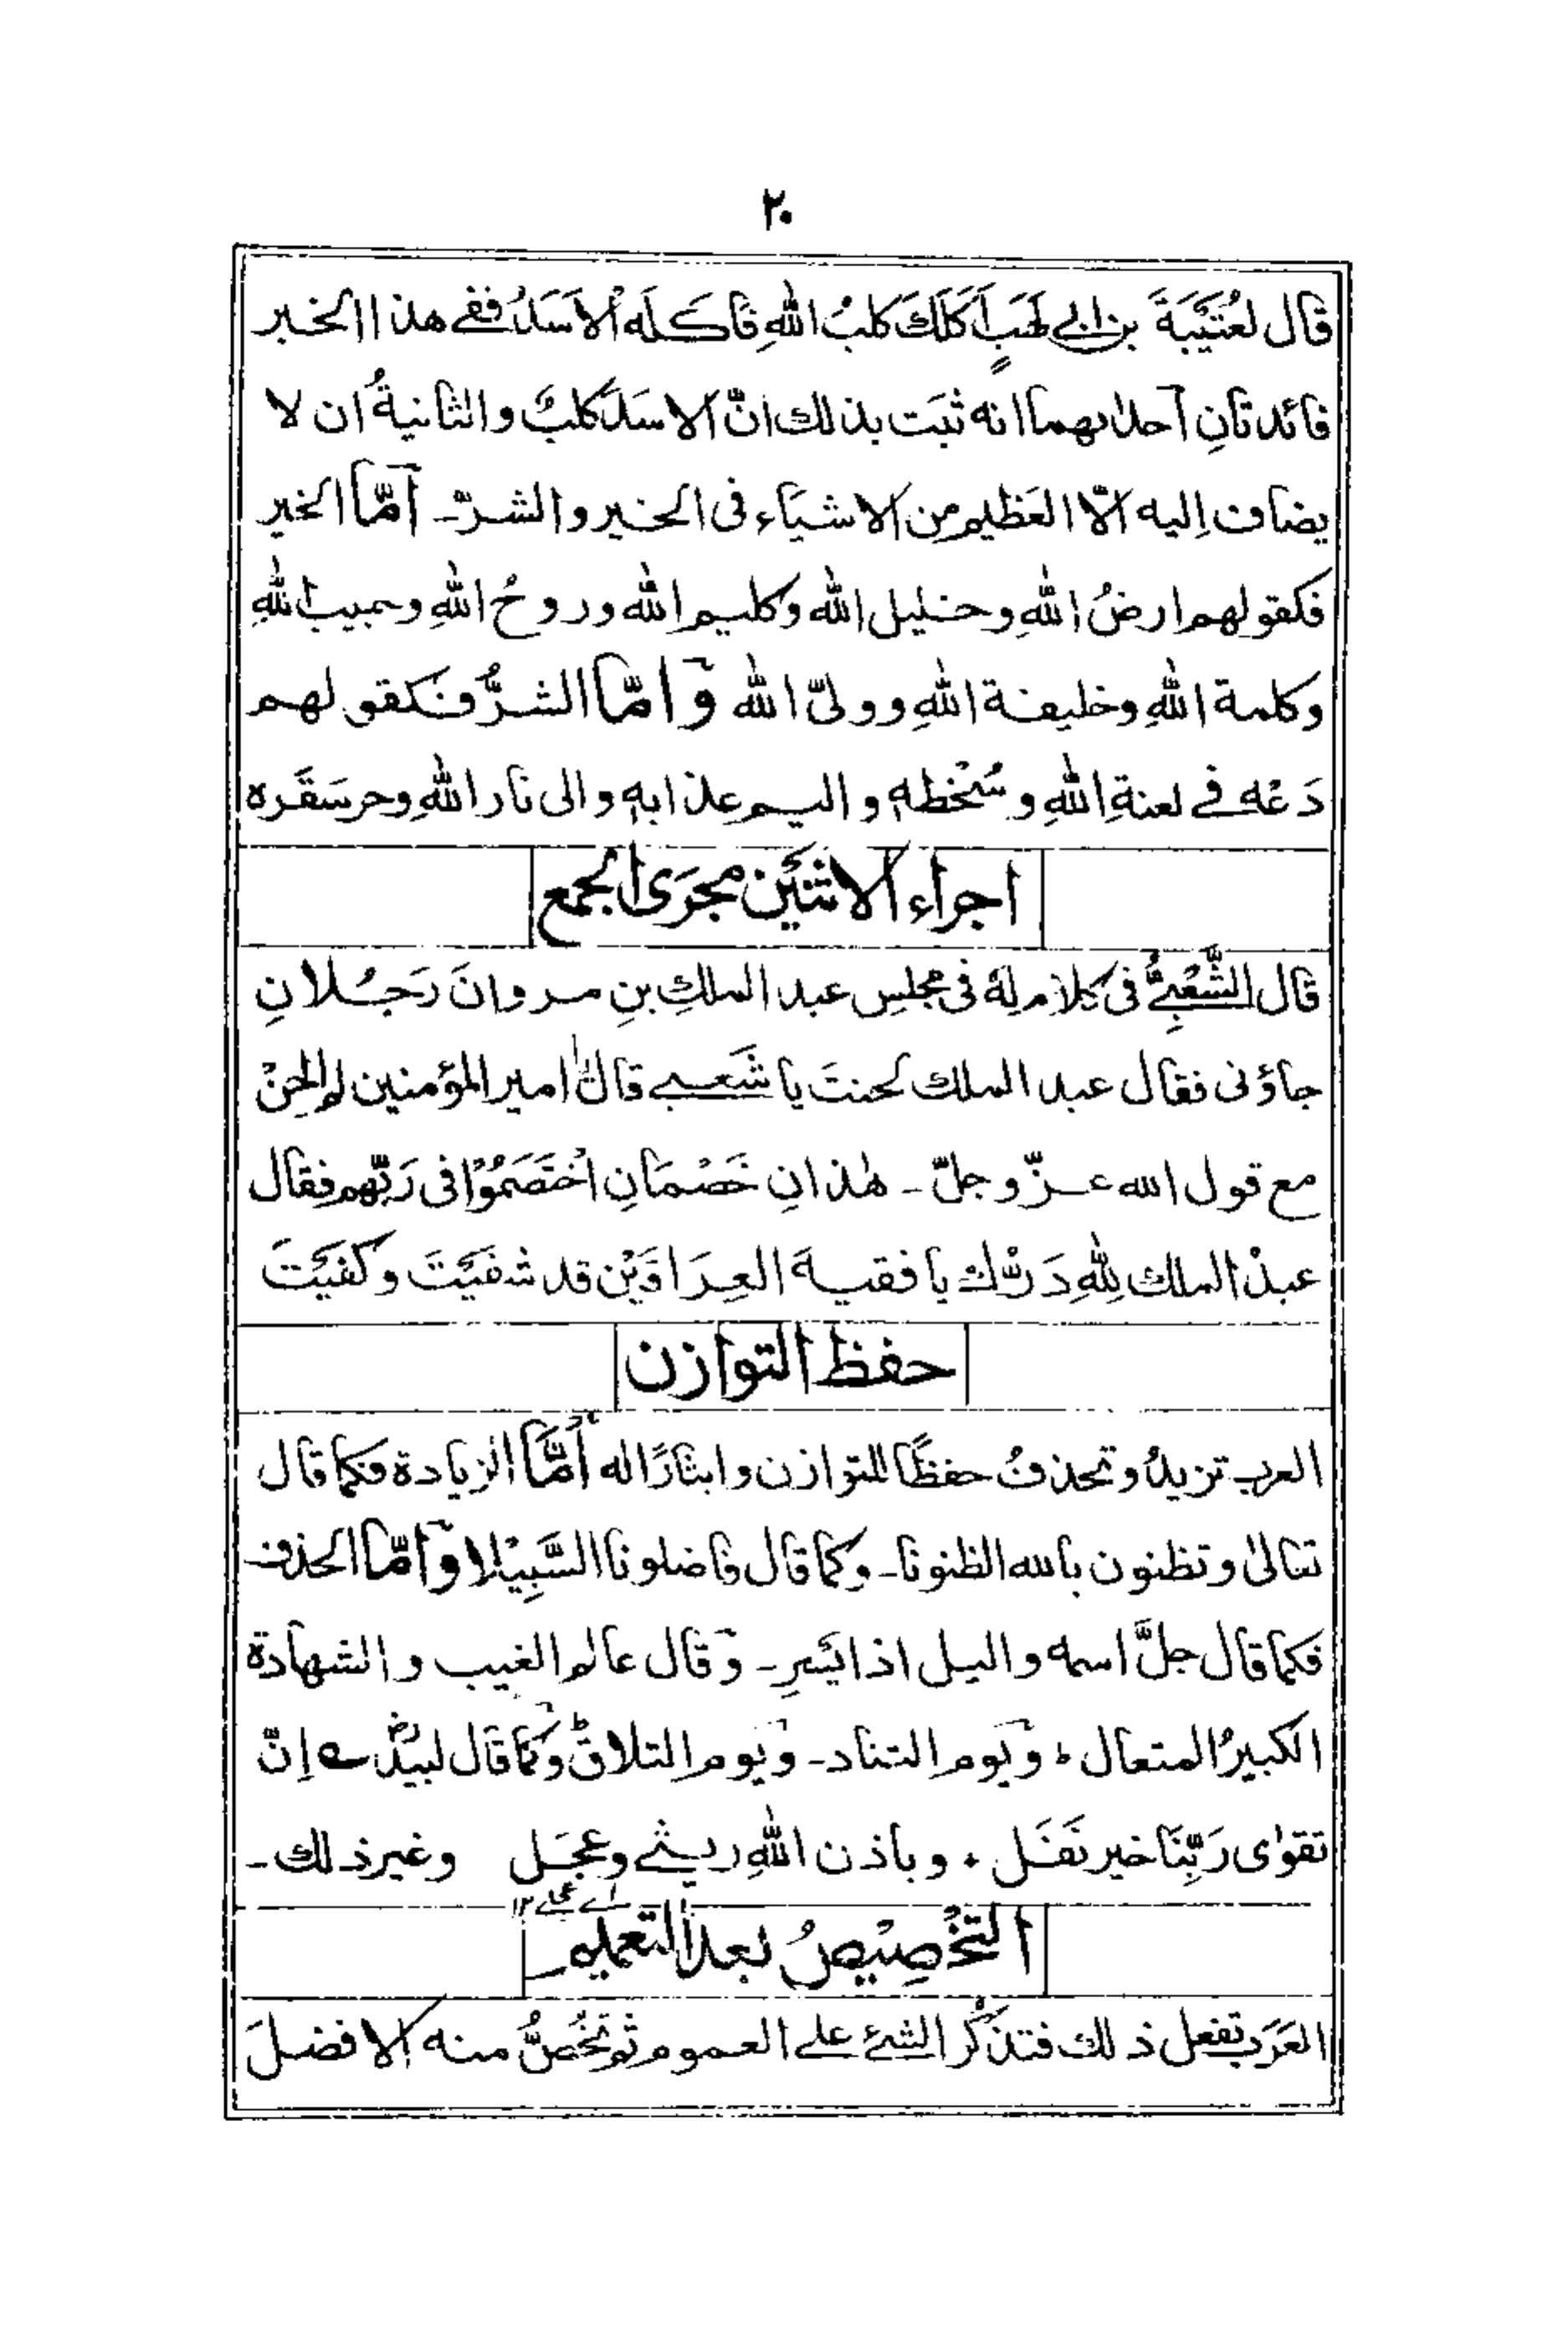 ٢٠
قال لعُتَيبَةَ بن ابى لهَبٍ اَكَلَكَ كلبُ اللهِ فاَكَلَه الاَسَدُ ففے هذا الخبر
فائدتانِ احدٰىهما انه ثبَت بذلك انّ الاسَدَ كلبٌ والثانيةُ ان لا
يضاف اِليه الّا العَظيم مِن الاشيَاء فى الخير والشرّ۔ اَمَّا الخير
فكقولهم ارضُ اللهِ وخليل الله وكليم الله وروحُ اللهِ وحبيب اللهِ
وكلمة اللهِ وخليفة اللهِ وولىّ الله وَامّا الشرُّ فكقولهم
دَعْه فے لعنةِ اللهِ وسُخْطه واليم عذابهٖ والى نار اللهِ وحر سَقَره
اجراء الاثنَين مجرَى الجمع
قال الشَّعْبِےُّ فى كلام له فى مجلس عبد الملكِ بنِ مروانَ رَجُلانِ
جاؤنى فقال عبد الملك لحنتَ يا شَعبے قال امير المؤمنين لم الحنْ
مع قول الله عزّوجلّ۔ هٰذانِ خَصْمَانِ اخْتَصَمُوْا فى رَبّهم فقال
عبدُ الملك لِلهِ دَرُّك يا فقيهَ العِرَاقَيْن قد شفَيْتَ وكفَيْتَ
حفظ التوازن
العرب تزيدُ وتحذفُ حفظًا للتوازن وايثارًا له اَمَّا الزيادة فكما قال
تعالىٰ وتظنون بالله الظنونا۔ وكما قال فاضلونا السَّبِيْلا وَامّا الحذف
فكما قال جلَّ اسمه واليل اذا يَسرِ۔ وَقال عالم الغيب والشهادة
الكبيرُ المتعال؞ وَيوم التناد۔ وَيوم التلاقِ وكما قال لبيدؓ ؎ اِنّ
تقوٰى رَبِّنَا خير نَفَل؞ وباذن اللهِ ريثے وعجَل وغير ذلك۔
اے عجلے ١٢
التخْصِيْصُ بعد التعميم
العَرَب تفعل ذلك فتذكُر الشئ علے العموم ثم تخُصُّ منه الافضلَ